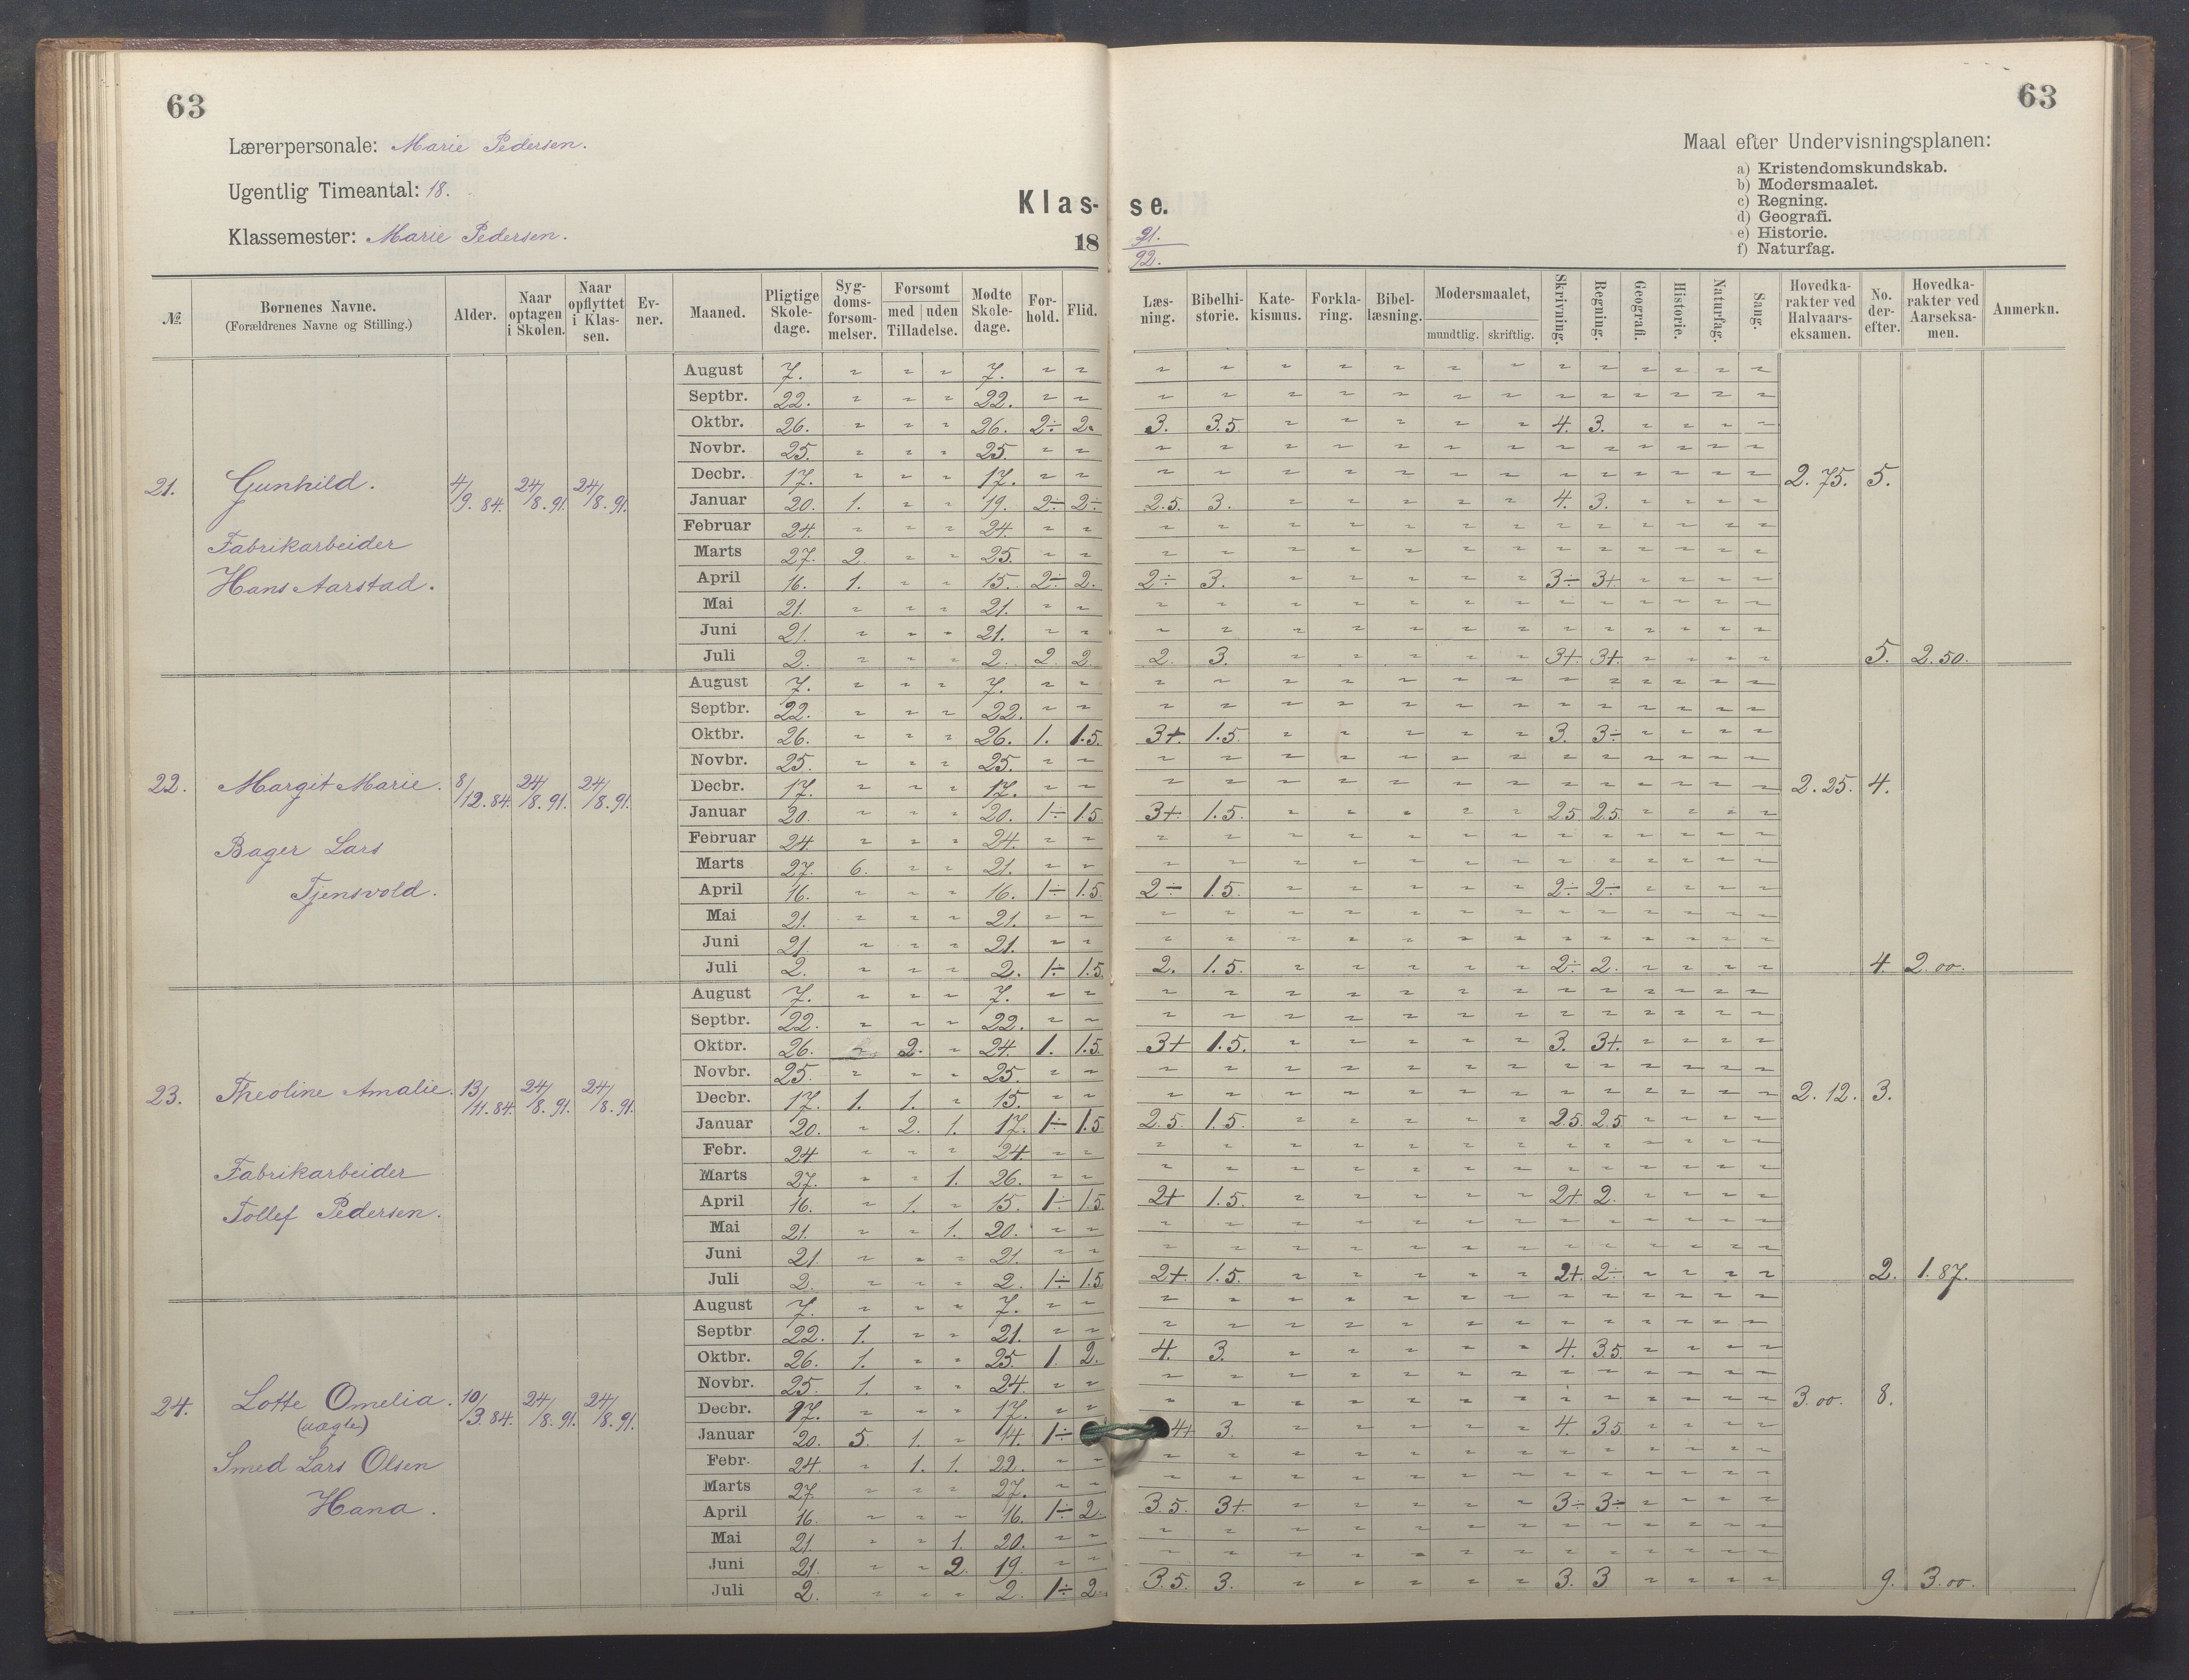 63
63
Lærerpersonale: Marie Pedersen.
Ugentlig Timeantal: 18.
Klassemester: Marie Pedersen.
Klas- se.
18 91./92.
Maal efter Undervisningsplanen:
a) Kristendomskundskab.
b) Modersmaalet.
c) Regning.
d) Geografi.
e) Historie.
f) Naturfag.
№ | Børnenes Navne. (Forældrenes Navne og Stilling.) | Alder. | Naar optagen i Skolen. | Naar opflyttet i Klassen. | Evner. | Maaned. | Pligtige Skoledage. | Sygdomsforsømmelser. | Forsømt med | uden Tilladelse. | Mødte Skoledage. | Forhold. | Flid. | Læsning. | Bibelhistorie. | Katekismus. | Forklaring. | Bibellæsning. | Modersmaalet, mundtlig. | skriftlig. | Skrivning. | Regning. | Geografi. | Historie. | Naturfag. | Sang. | Hovedkarakter ved Halvaarseksamen. | No. derefter. | Hovedkarakter ved Aarseksamen. | Anmerkn.
21. Gunhild. 4/9. 84. 24/8. 91. 24/8. 91.
Fabrikarbeider
Hans Aarstad.
August 7. " " " 7. " " " " " " " " " " " " " " "
Septbr. 22. " " " 22. " " " " " " " " " " " " " " "
Oktbr. 26. " " " 26. 2÷ 2. 3. 3.5. " " " " " 4. 3. " " " "
Novbr. 25. " " " 25. " " " " " " " " " " " " " " "
Decbr. 17. " " " 17. " " " " " " " " " " " " " " " 2.75. 5.
Januar 20. 1. " " 19. 2÷ 2÷ 2.5. 3. " " " " " 4. 3. " " " "
Februar 24. " " " 24. " " " " " " " " " " " " " " "
Marts 27. 2. " " 25. " " " " " " " " " " " " " " "
April 16. 1. " " 15. 2÷ 2. 2÷ 3. " " " " " 3÷ 3+ " " " "
Mai 21. " " " 21. " " " " " " " " " " " " " " "
Juni 21. " " " 21. " " " " " " " " " " " " " " "
Juli 2. " " " 2. 2. 2. 2. 3. " " " " " 3+. 3+. " " " " 5. 2.50.
22. Margit Marie. 8/12. 84. 24/8. 91. 24/8. 91.
Bager Lars
Tjensvold.
August 7. " " " 7. " " " " " " " " " " " " " " "
Septbr. 22. " " " 22. " " " " " " " " " " " " " " "
Oktbr. 26. " " " 26. 1. 1.5. 3+. 1.5. " " " " " 3. 3÷ " " " "
Novbr. 25. " " " 25. " " " " " " " " " " " " " " "
Decbr. 17. " " " 17. " " " " " " " " " " " " " " " 2.25. 4.
Januar 20. " " " 20. 1÷ 1.5 3+. 1.5. " " " " " 2.5 2.5. " " " "
Februar 24. " " " 24. " " " " " " " " " " " " " " "
Marts 27. 6. " " 21. " " " " " " " " " " " " " " "
April 16. " " " 16. 1÷ 1.5. 2÷ 1.5. " " " " " 2÷ 2÷ " " " "
Mai 21. " " " 21. " " " " " " " " " " " " " " "
Juni 21. " " " 21. " " " " " " " " " " " " " " "
Juli 2. " " " 2. 1÷ 1.5. 2. 1.5. " " " " " 2÷ 2. " " " " 4. 2.00.
23. Theoline Amalie. 13/11. 84. 24/8. 91. 24/8. 91.
Fabrikarbeider
Tollef Pedersen.
August 7. " " " 7. " " " " " " " " " " " " " " "
Septbr. 22. " " " 22. " " " " " " " " " " " " " " "
Oktbr. 26. " 2. " 24. 1. 1.5 3+ 1.5. " " " " " 3. 3+. " " " "
Novbr. 25. " " " 25. " " " " " " " " " " " " " " "
Decbr. 17. 1. 1. " 15. " " " " " " " " " " " " " " " 2.12. 3.
Januar 20. " 2. 1. 17. 1÷ 1.5. 2.5. 1.5. " " " " " 2.5. 2.5 " " " "
Febr. 24 " " " 24. " " " " " " " " " " " " " " "
Marts 27. " " 1. 26. " " " " " " " " " " " " " " "
April 16. " 1. " 15. 1÷ 1.5 2+ 1.5. " " " " " 2+. 2. " " " "
Mai 21. " " 1. 20. " " " " " " " " " " " " " " "
Juni 21. " " " 21. " " " " " " " " " " " " " " "
Juli 2. " " " 2. 1÷ 1.5 2+. 1.5. " " " " " 2+. 2÷ " " " " 2. 1.87.
24. Lotte Omelia. 10/3. 84. 24/8. 91. 24/8. 91.
(uægte)
Smed Lars Olsen
Hana.
August 7. " " " 7. " " " " " " " " " " " " " " "
Septbr 22. 1. " " 21. " " " " " " " " " " " " " " "
Oktbr. 26. 1. " " 25. 1. 2. 4. 3. " " " " " 4. 3.5. " " " "
Novbr. 25. 1. " " 24. " " " " " " " " " " " " " " "
Decbr. 17. " " " 17. " " " " " " " " " " " " " " " 3.00. 8.
Januar 20. 5. 1. " 14. 1÷ 4+ 3. " " " " " 4. 3.5 " " " "
Febr. 24. " 1. 1. 22. " " " " " " " " " " " " " " "
Marts 27 " " " 27. " " " " " " " " " " " " " " "
April 16. " " " 16. 1÷ 2. 3.5. 3+. " " " " " 3÷ 3÷ " " " "
Mai 21. " " 1. 20. " " " " " " " " " " " " " " "
Juni 21. " " 2. 19. " " " " " " " " " " " " " " "
Juli 2. " " " 2. 1÷ 2. 3.5. 3. " " " " " 3. 3 " " " " 9. 3.00.